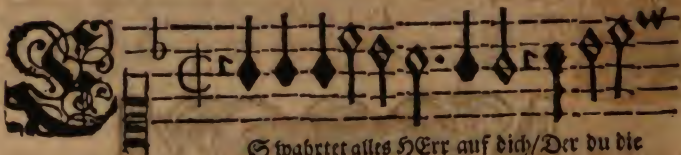 ES wahrtet alles HErr auf dich/Der du die